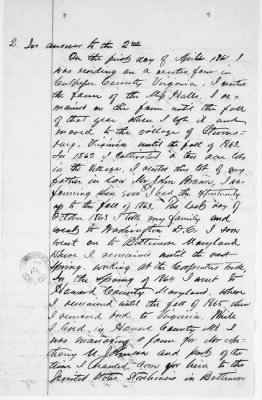 2. In answer to the 2nd
On the first day of April 1861 I
was residing on a rented farm in
Culpeper County Virginia. I rented
the farm of the Miss Halls, I re-
mained on the farm until the fall
of that year when I left it and
moved to the village of
burg, Virginia until the fall of 1863.
In 1862 I cultivated a ten acre lot
in the village, I rented this lot of my
father in law Mr John Brown, I
farming then ever I had the opportunity
up to the fall of 1863. The last day of
October 1863 I took my family and
went to Washington D.C. I soon
went on to Baltimore Maryland
where I remained until the next
Spring, working at the Carpenters trade,
in the Spring of 1864 I went to
Howard County Maryland, where
I remained until the fall of 1865 when
I removed back to Virginia. While
I lived in Howard County Md I
was managing a farm for Mr An-
thony M. Johnson and part of the
time I hauled for him to the
United States Storehouses in Baltimore